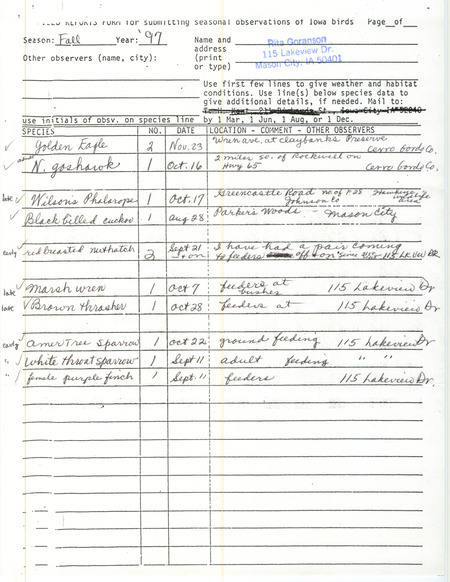 FIELD REPORTS FORM for submitting seasonal observations of Iowa birds Page_of__
Season: Fall Year: '97
Name and address (print or type)
Rita Goranson
115 Lakeview Dr.
Mason City, IA 50401
Other observers (name, city):
Use first few lines to give weather and habitat
conditions. Use line(s) below species data to
give additional details, if needed. Mail to:
use initials of obsv. on species line by 1 Mar, 1 Jun, 1 Aug, or 1 Dec.
SPECIES NO. DATE LOCATION - COMMENT - OTHER OBSERVERS
✓ Golden Eagle 2 Nov. 23 Wren ave. at claybanks Preserve
Cerro Gordo Co.
adult N. goshawk 1 Oct. 16 2 miles so. of Rockwell on
Hwy 65 Cerro Gordo Co.
late ✓ Wilson's Phalarope 1 Oct. 17 Greencastle Road no. of F28
Johnson Co
✓ Black billed cuckoo 1 Aug 28 Parker's Woods - Mason City
early red breasted nuthatch 2 Sept 21 I have had a pair coming
to feeders off + on 115 LK. View DR.
late ✓ Marsh wren 1 Oct 7 feeders at 115 Lakeview Dr
bushes
late ✓ Brown Thrasher 1 Oct 28 feeders at 115 Lakeview Dr.
early Amer Tree Sparrow 1 Oct 22 ground feeding 115 Lakeview Dr
" White throat sparrow 1 Sept 11 adult feeding " "
" female purple finch 1 Sept. 11 feeders 115 Lakeview Dr.